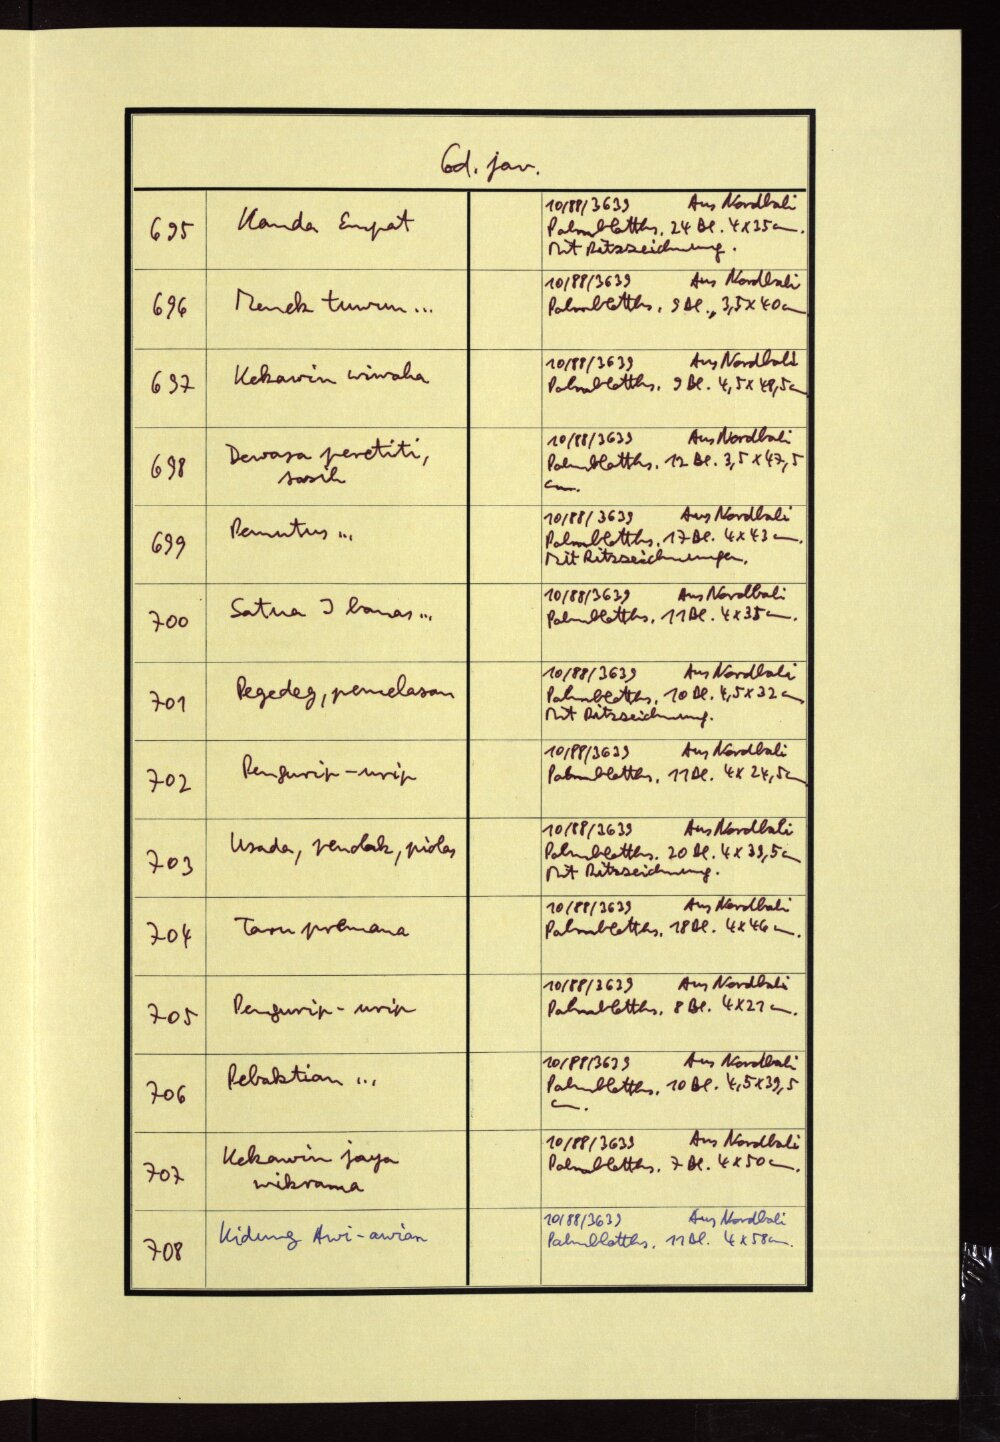 Cod. jav.
695 Kanda Empat 10/88/3639 Aus Nordbali
Palmblatths. 24 Bl. 4x35cm.
Mit Ritzzeichnung.
696 Menek tuwun... 10/88/3639 Aus Nordbali
Palmblatths. 9 Bl., 3,5x40cm
697 Kekawin wiwaha 10/88/3639 Aus Nordbali
Palmblatths. 9 Bl. 4,5x48,5cm
698 Dewasa peretiti, 10/88/3639 Aus Nordbali
sasih Palmblatths. 12 Bl. 3,5x47,5
cm.
699 Pemutus... 10/88/3639 Aus Nordbali
Palmblatths. 17 Bl. 4x43cm.
Mit Ritzzeichnungen.
700 Satua I banas... 10/88/3639 Aus Nordbali
Palmblatths. 11 Bl. 4x35cm.
701 Pegedeg, pemelasan 10/88/3639 Aus Nordbali
Palmblatths. 10 Bl. 4,5x32cm
Mit Ritzzeichnung.
702 Pengurip-urip 10/88/3639 Aus Nordbali
Palmblatths. 11 Bl. 4x24,5cm
703 Usada, pendak, piolas 10/88/3639 Aus Nordbali
Palmblatths. 20 Bl. 4x39,5cm
Mit Ritzzeichnung.
704 Taru premana 10/88/3639 Aus Nordbali
Palmblatths. 18 Bl. 4x46cm.
705 Pengurip-urip 10/88/3639 Aus Nordbali
Palmblatths. 8 Bl. 4x21cm.
706 Pebaktian... 10/88/3639 Aus Nordbali
Palmblatths. 10 Bl. 4,5x39,5
cm.
707 Kekawin jaya 10/88/3639 Aus Nordbali
wikrama Palmblatths. 7 Bl. 4x50cm.
708 Kidung Awi-awian 10/88/3639 Aus Nordbali
Palmblatths. 11 Bl. 4x58cm.